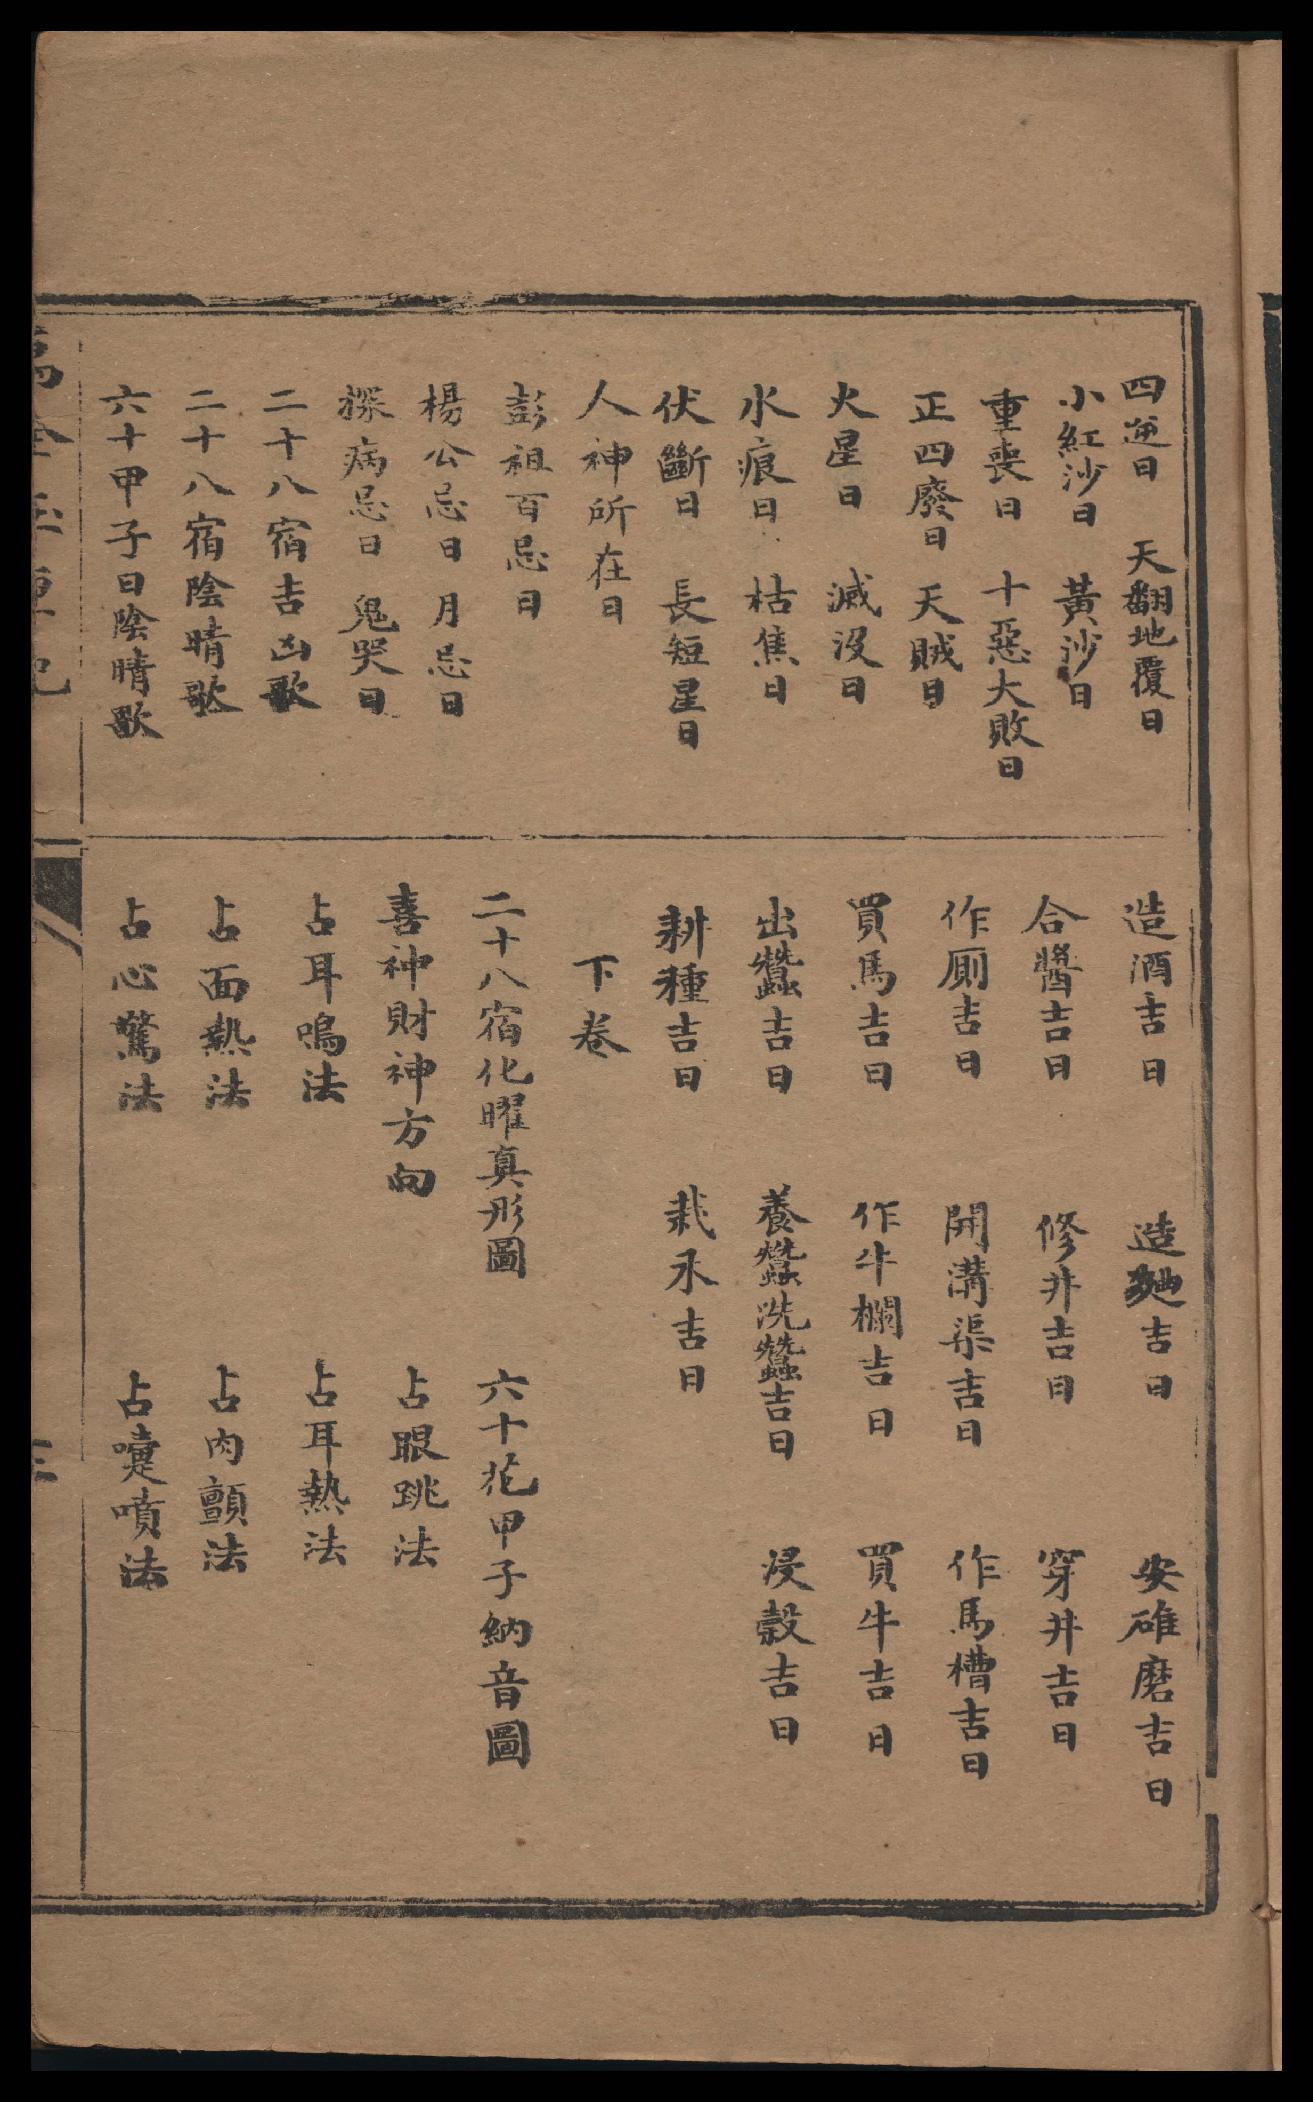 四逆日　天翻地覆日
小紅沙日　黃沙日
重喪日　十惡大敗日
正四廢日　天賊日
火星日　滅沒日
水痕日　枯焦日
伏斷日　長短星日
人神所在日
彭祖百忌日
楊公忌日　月忌日
探病忌日　鬼哭日
二十八宿吉凶歌
二十八宿陰晴歌
六十甲子日陰晴歌
造酒吉日　造麯吉日　安碓磨吉日
合醬吉日　修井吉日　穿井吉日
作厠吉日　開溝渠吉日　作馬槽吉日
買馬吉日　作牛欄吉日　買牛吉日
出蠶吉日　養蠶洗蠶吉日　浸穀吉日
耕種吉日　栽禾吉日
下卷
二十八宿化曜真形圖　六十花甲子納音圖
喜神財神方向　占眼跳法
占耳鳴法　占耳熱法
占面熱法　占肉顫法
占心驚法　占嚏噴法